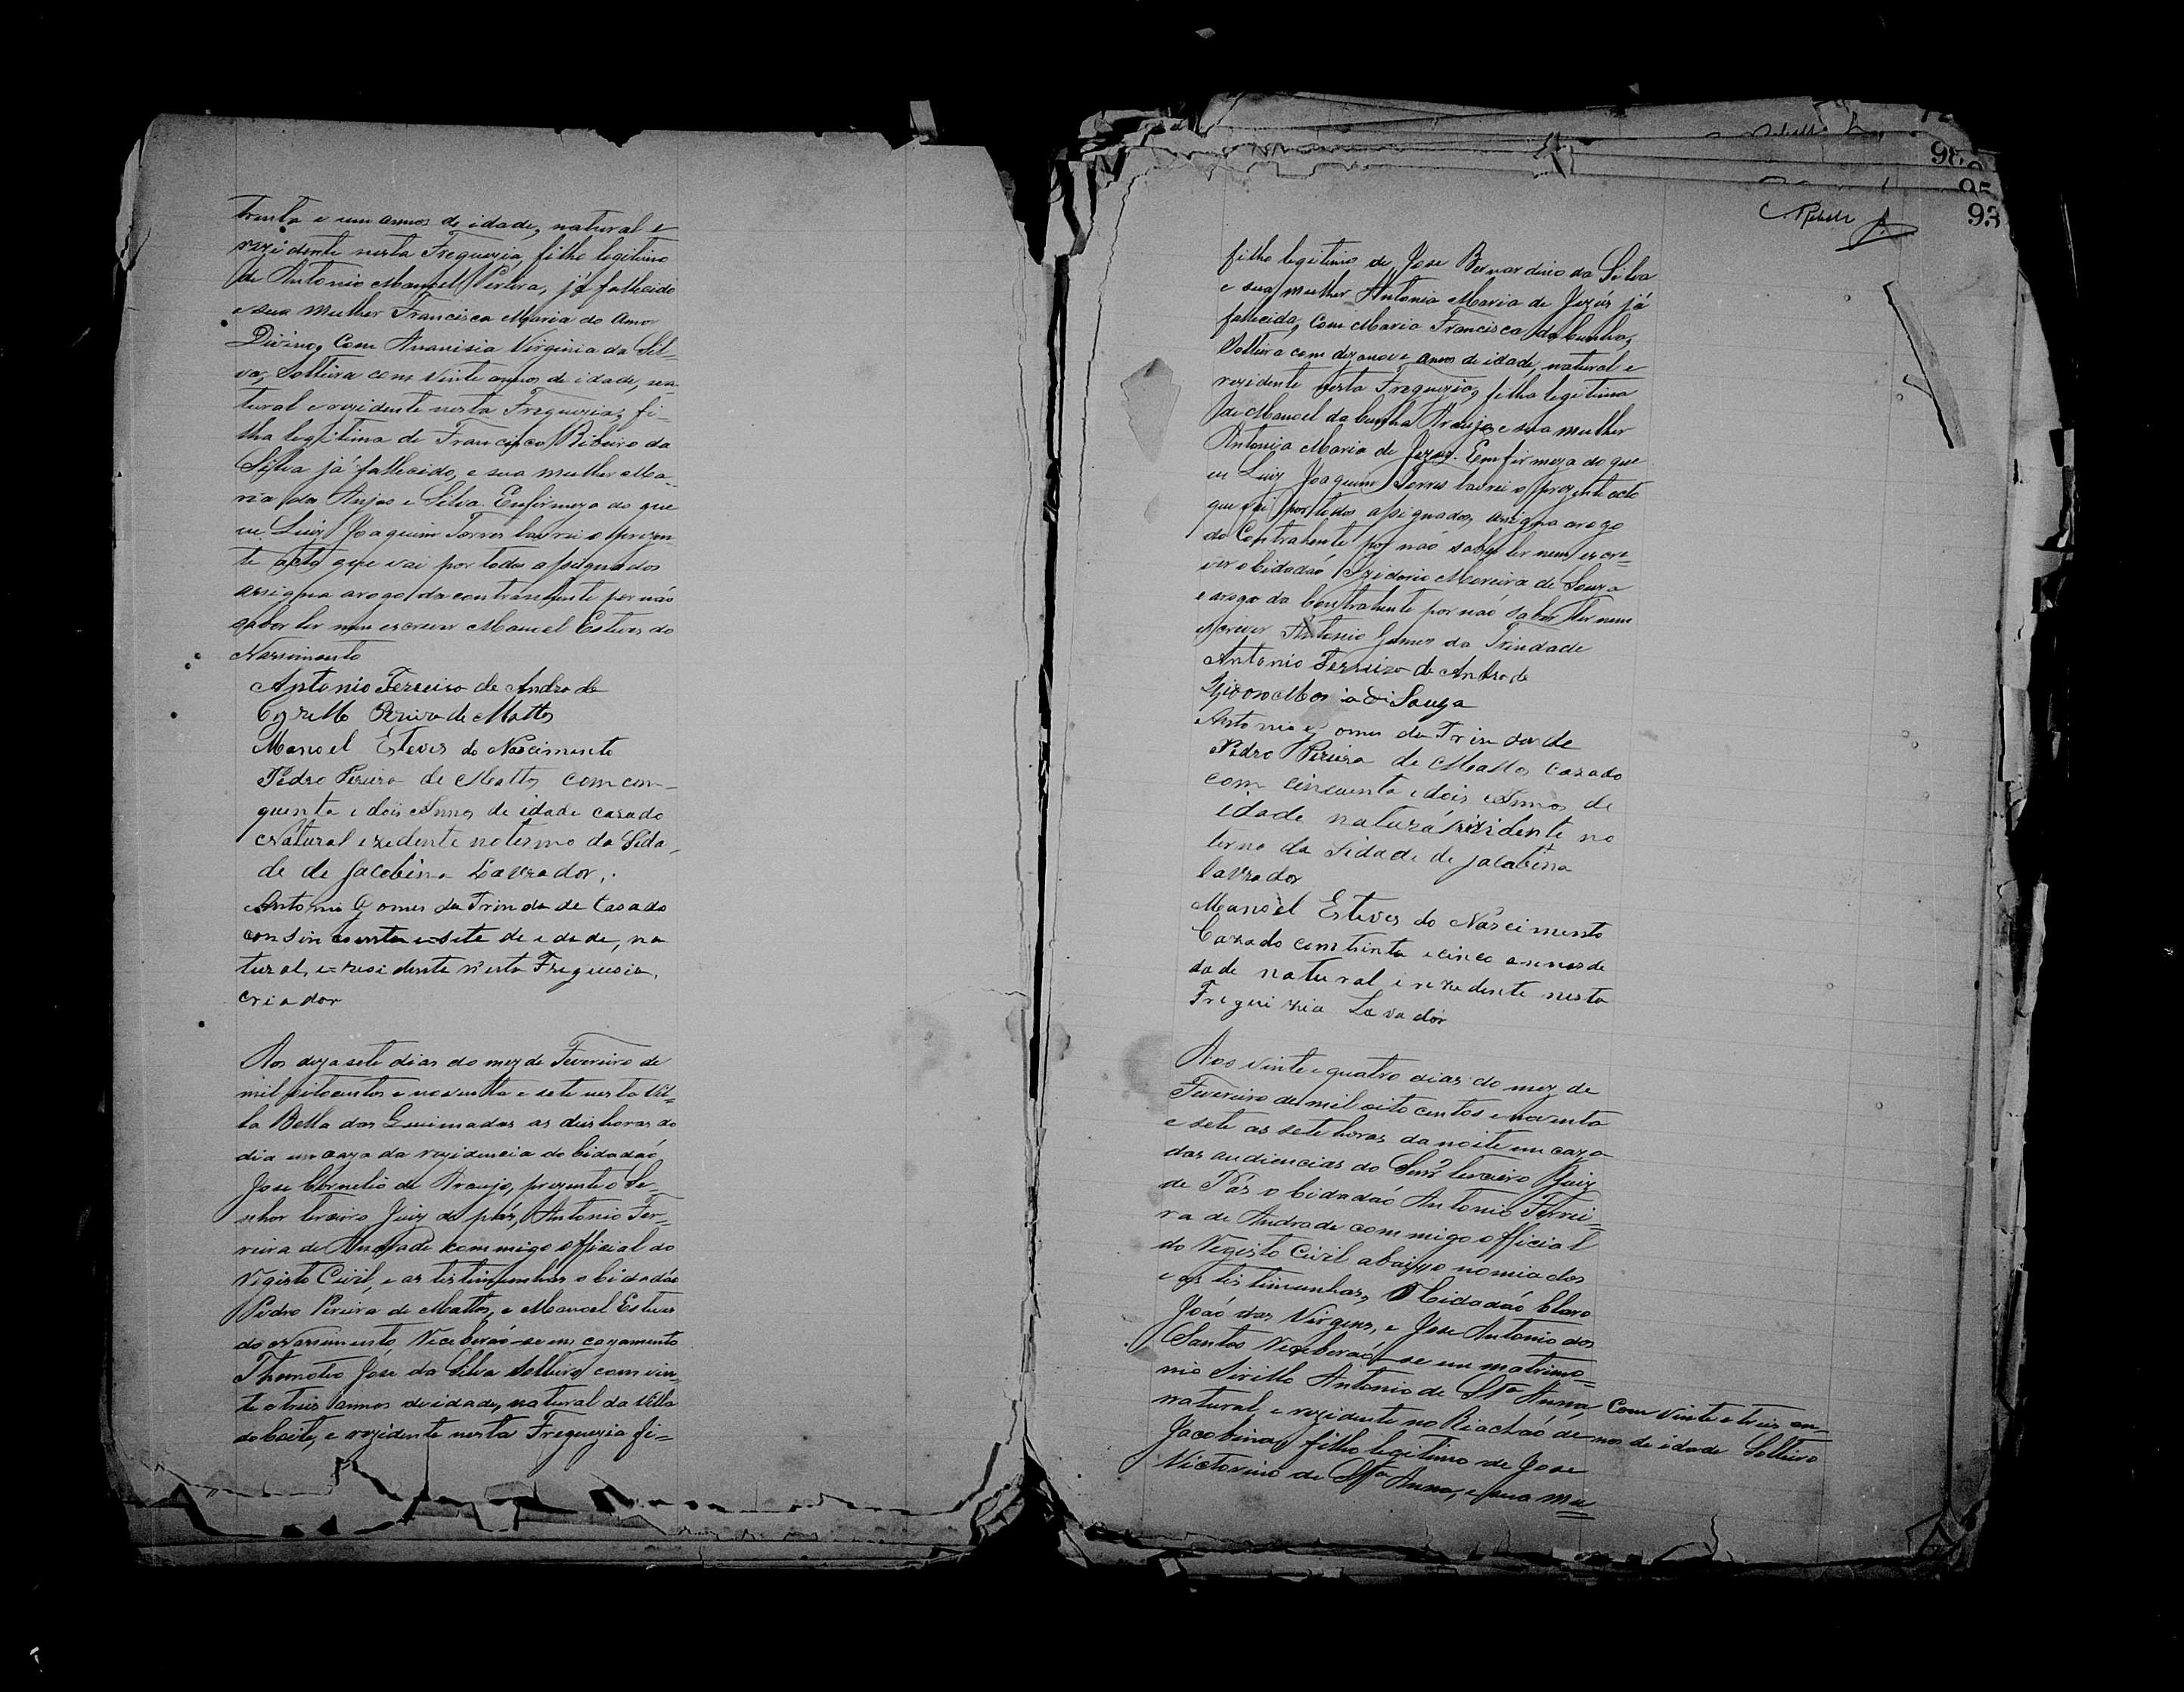 trinta e um annos de idade, natural e
rezidente nesta Freguezia, filho legitimo
de Antonio Manoel Pereira, já fallecido
e sua mulher Francisca Maria do Amor
Divino, Com Ananisia Virginia da Sil=
va, Solteira com vinte annos de idade, na
tural e rezidente nesta Freguezia, fi-
lha legitima de Francisco Ribeiro da
Silva já fallecido, e sua mulher Ma-
ria dos Anjos e Silva. Enfirmeza do que
eu Luiz Joaquim Torres lavrei o prezen-
te acto que vai por todos assignados
assigna arogo da contrahente por não
saber ler nem escrever Manoel Esteves do
Nascimento
Antonio Ferreira de Andrade
Pereira de Mattos
Manoel Esteves do Nascimento
Pedro Pereira de Mattos com cin-
quenta e dois Annos de idade casado
Natural e zedente no termo da Sida-
de de Jacobina Lavrador,
Antonio Gomes da Trindade Casado
con sincoenta e sete de edade, na
tural, e residente nesta Freguesia,
criador
Aos dezasete dias do mez de Fevereiro de
mil oitocentos e noventa e sete nesta Vil=
la Bella das Queimadas as duas horas do
dia em caza da rezidencia do Cidadaó
Jose Cornelio de Araujo, prezente o Se-
nhor terceiro Juiz de páz, Antonio Fer-
reira de Andrade commigo official do
Registo Civil, e as testimunhas o Cidadão
Pedro Pereira de Mattos, e Manoel Esteves
do Nascimento Receberaó-se em cazamento
Thimoteo José da Silva Solteiro com vin-
te e treis annos de idade, natural da Villa
do Coite, e rezidente nesta Freguezia fi=
98
95
93
Rebello
filho legitimo de Jose Bernardino da Silva
e sua mulher Antonia Maria de Jezús já
fallecida, Com Maria Francisca da Cunha,
Solteira com dezanove annos de idade, natural e
rezidente nesta Freguezia, filha legitima
de Manoel da Cunha Araujo e sua mulher
Antonia Maria de Jezus. Emfirmeza do que
eu Luiz Joaquim Torres lavrei o prezente acto
que vai por todos assignados, assigna arogo
do Contrahente por naó saber ler nem escre=
ver o Cidadaó Izidorio Moreira de Souza
e arogo da Contrahente por naó saber ler nem
escrever Antonio Gomes da Trindade
Antonio Ferreira de Andrade
di Souza
Antonio Gomes da Trindade
Pedro Pereira de Mattos Cazado
com cincuenta e dois Annos de
idade natural rizidente no
termo da Sidade de Jacabina
lavrador
Manoel Esteves do Nascimento
Cazado com trinta e cinco annos de
dade natural e rezedente nesta
Freguizia Lavador
Aos vinte e quatro dias do mez de
Fevereiro de mil oito centos e noventa
e sete as sete horas da noite em caza
das audiencias do Senr. terceiro Juiz
de Pás o Cidadaó Antonio Ferrei=
ra de Andrade commigo official
do Registo Civil abaixo nomiados
e as testimunhas, O Cidadaó Claro
Joaó das Virgens, e Jose Antonio dos
Santos Receberaó-se em matrimo=
nio Sirillo Antonio de Sta Anna, Com vinte e treis an=
natural e rezidente no Riachaó de nos de idade Solteiro
Jacobina, filho legitimo de Jose
Victorino de Sta Anna, e sua mu